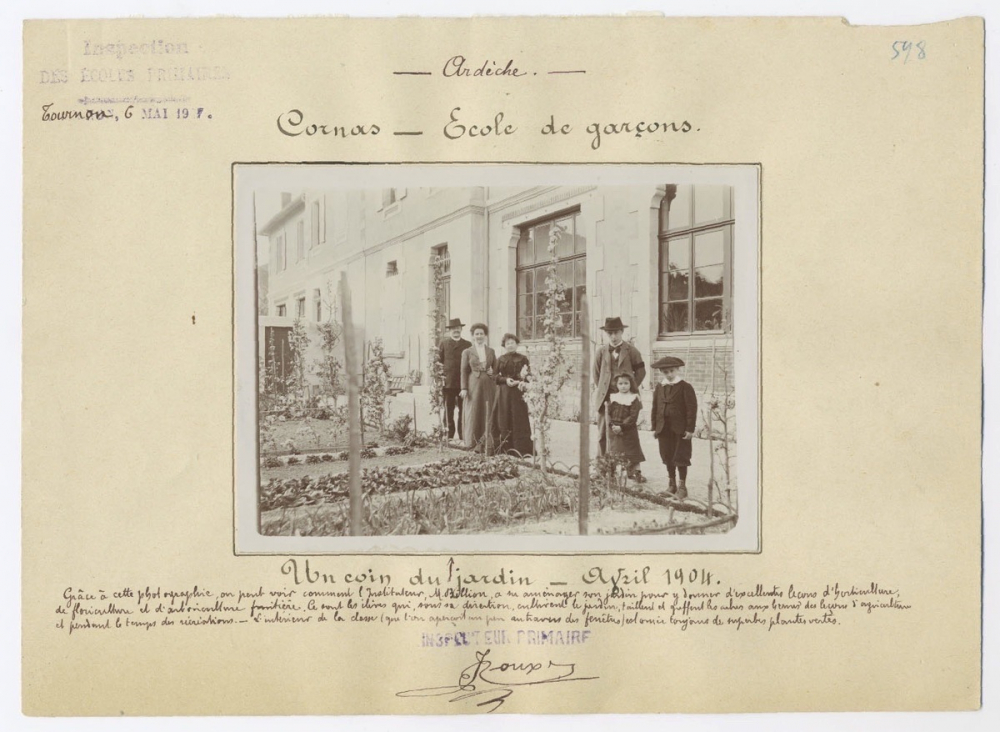 Inspection
DES ÉCOLES PRIMAIRES
Tournon, 6 MAI 19
598
— Ardèche. —
Cornas — Ecole de garçons.
Un coin du jardin — Avril 1904.
Grâce à cette photographie, on peut voir comment l'Instituteur, M. Billion, a su aménager son jardin pour y donner d'excellentes leçons d'horticulture,
de floriculture et d'arboriculture fruitière. Ce sont les élèves qui, sous sa direction, cultivent le jardin, taillent et greffent les arbres aux heures des leçons d'agriculture
et pendant le temps des récréations. — L'intérieur de la classe (que l'on aperçoit un peu au travers des fenêtres) est ornée toujours de superbes plantes vertes.
INSPECTEUR PRIMAIRE
Roux